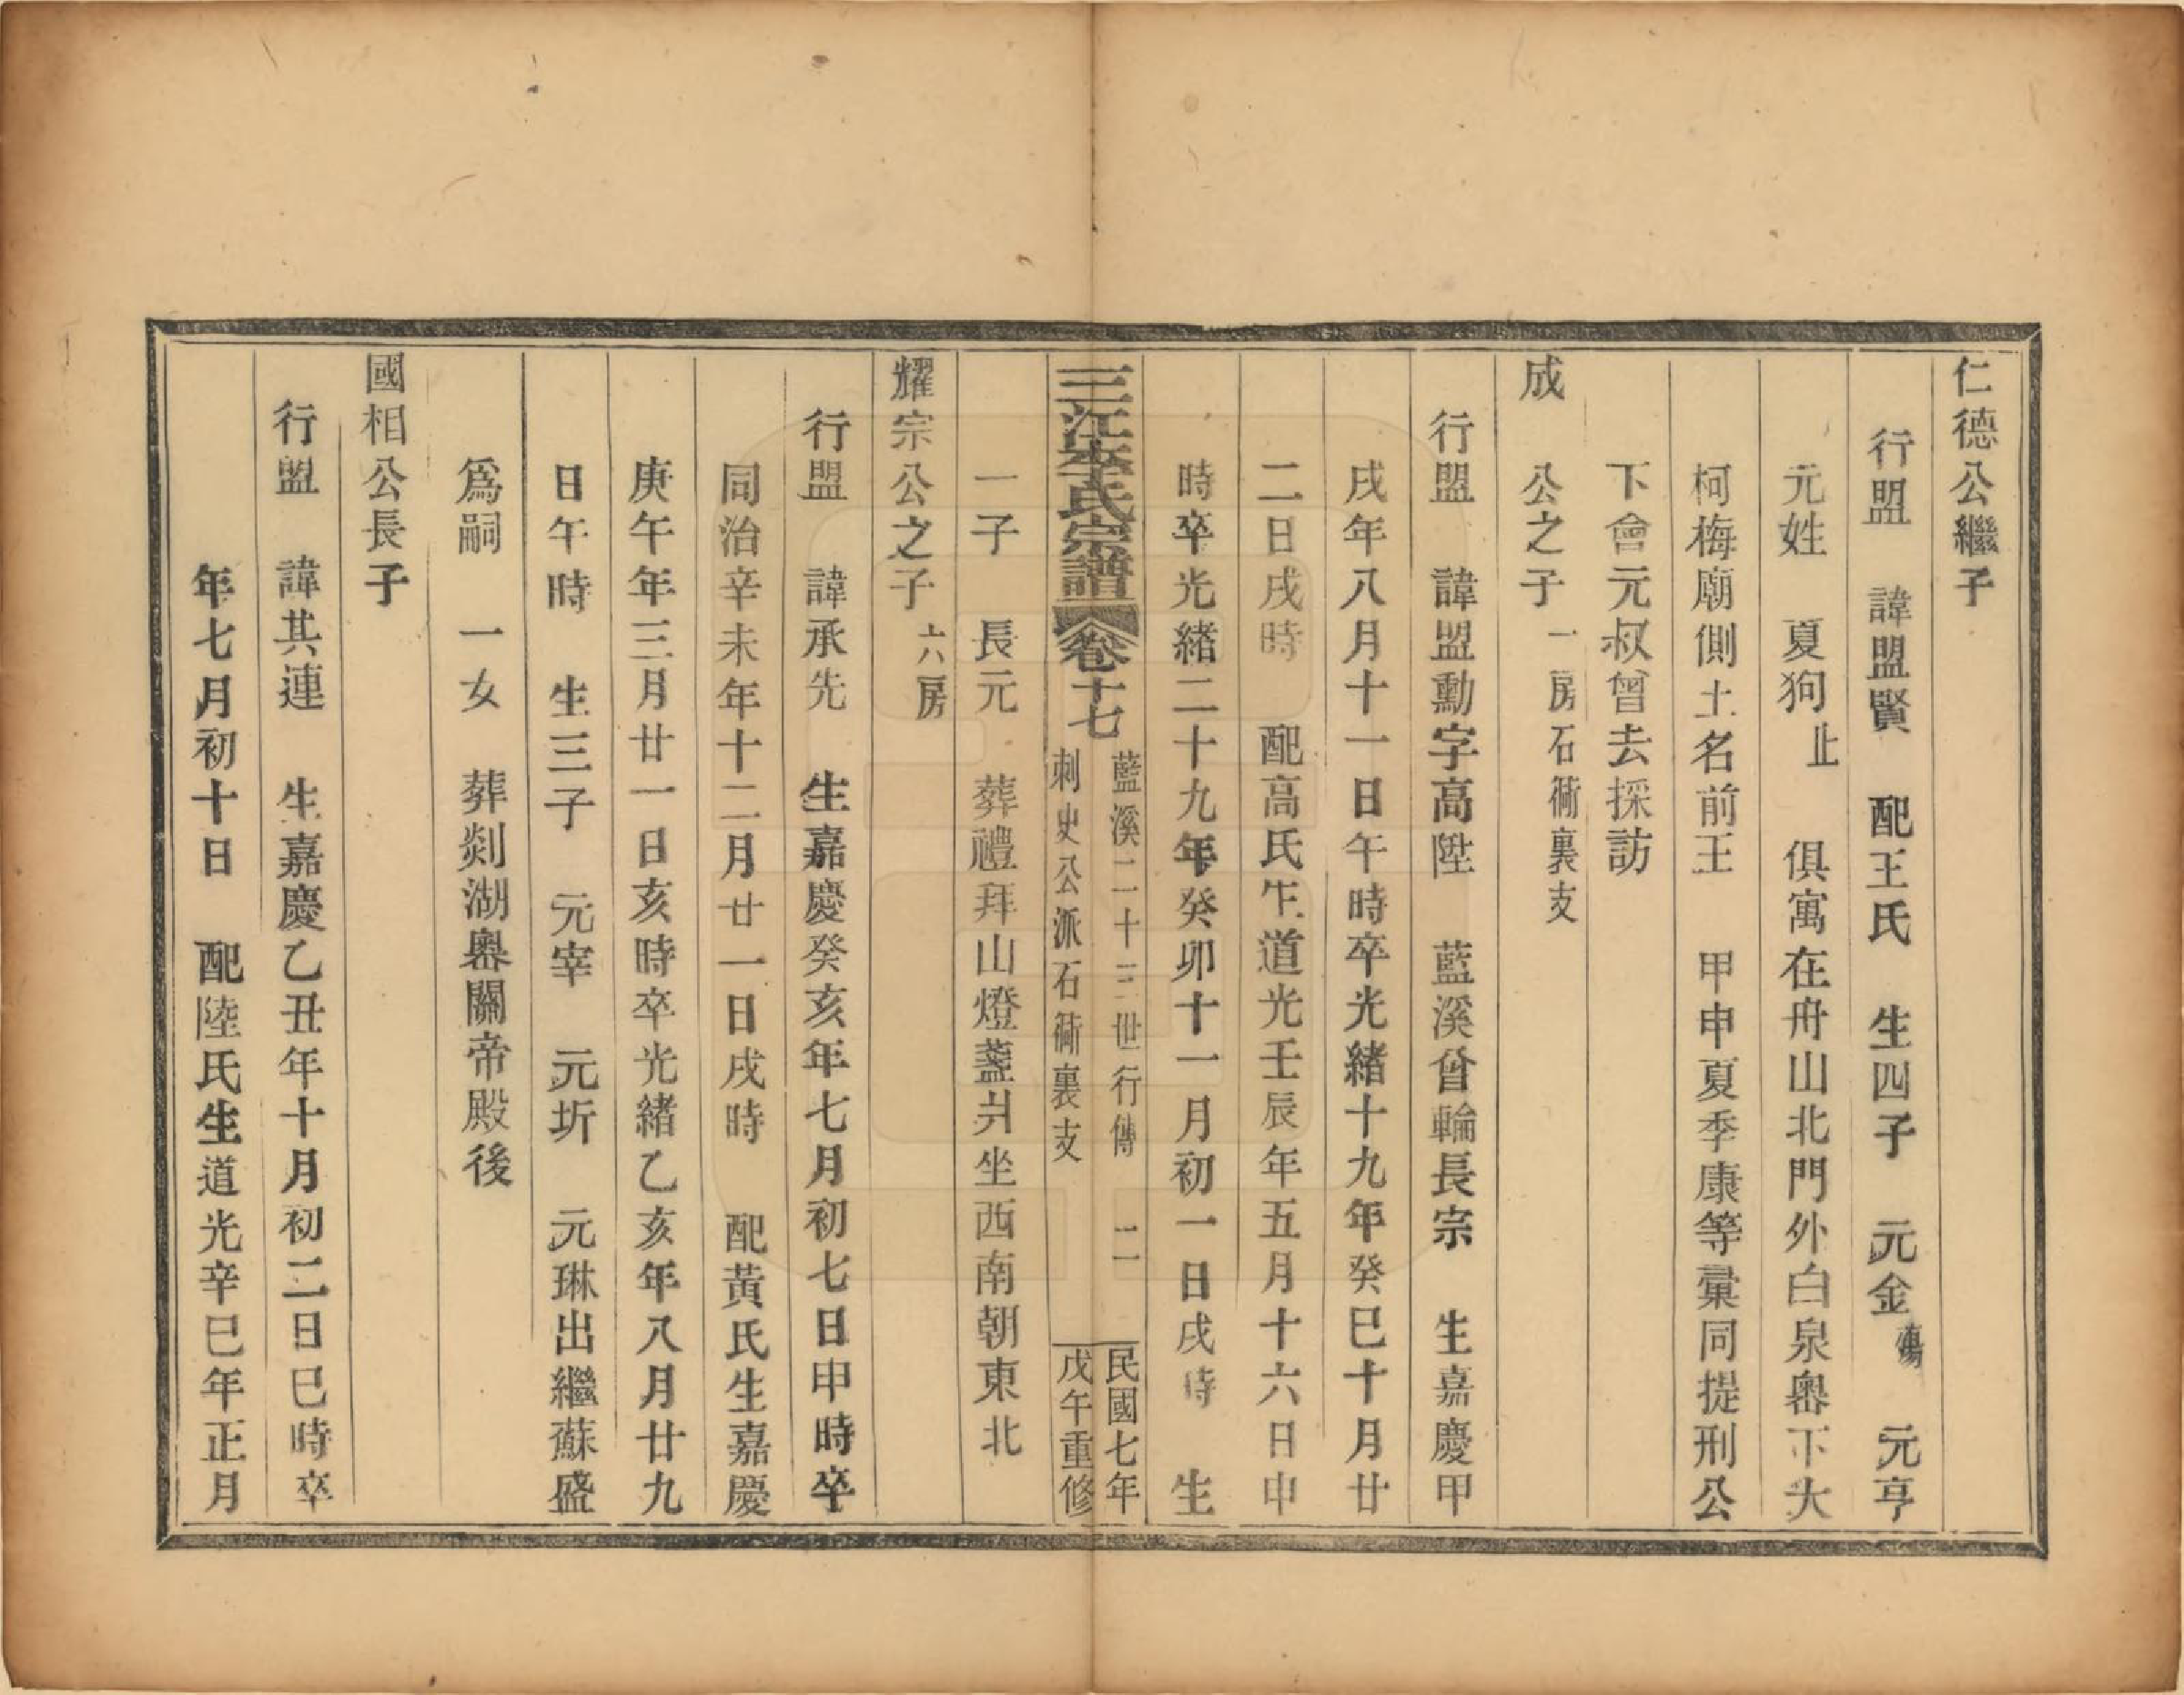 仁德公繼子
行盟　諱盟賢　配王氏　生四子　元金殤　元亨
元姓　夏狗止　俱寓在舟山北門外白泉嶴下大
柯梅廟側土名前王　甲申夏季康等彙同提刑公
下會元叔曾去採訪
成　公之子一房石衕裏支
行盟　諱盟勳字高陞　藍溪曾輪長宗　生嘉慶甲
戌年八月十一日午時卒光緒十九年癸巳十月廿
二日戌時　配高氏生道光壬辰年五月十六日申
時卒光緒二十九年癸卯十一月初一日戌時　生
一子　長元　葬禮拜山燈盞爿坐西南朝東北
三江李氏宗譜　卷十七　藍溪二十三世行傳　二　民國七年
刺史公派石衕裏支　戊午重修
耀宗公之子六房
行盟　諱承先　生嘉慶癸亥年七月初七日申時卒
同治辛未年十二月廿一日戌時　配黃氏生嘉慶
庚午年三月廿一日亥時卒光緒乙亥年八月廿九
日午時　生三子　元宰　元圻　元琳出繼蘇盛
爲嗣　一女　葬剡湖嶴關帝殿後
國相公長子
行盟　諱其連　生嘉慶乙丑年十月初二日巳時卒
年七月初十日　配陸氏生道光辛巳年正月